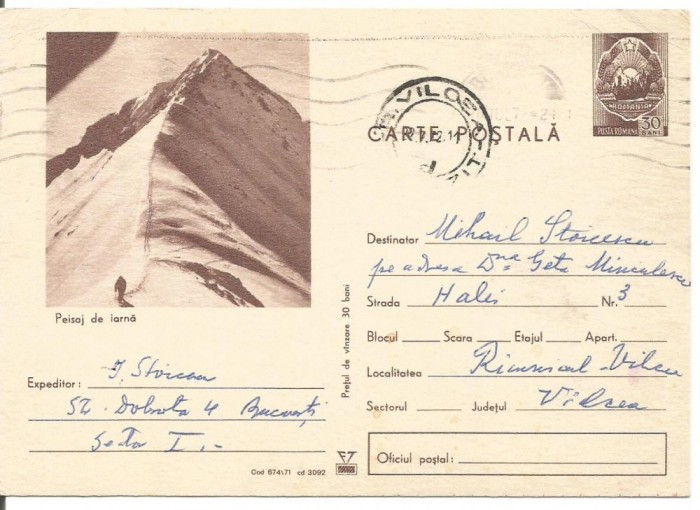 ROMANIA
POSTA ROMANA 30 BANI
CARTE POȘTALĂ
Peisaj de iarnă
Destinator Mihail Stoicescu
pe adresa Dna Geta Miniculescu
Strada Halei Nr. 3
Blocul Scara Etajul Apart.
Localitatea Rimnicul-Vilcea
Sectorul Județul Vilcea
Oficiul poștal:
Prețul de vînzare 30 bani
Expeditor: J. Stoicescu
Sz. Dobrota 4 București
Sector I,-
Cod 674\71 cd 3092